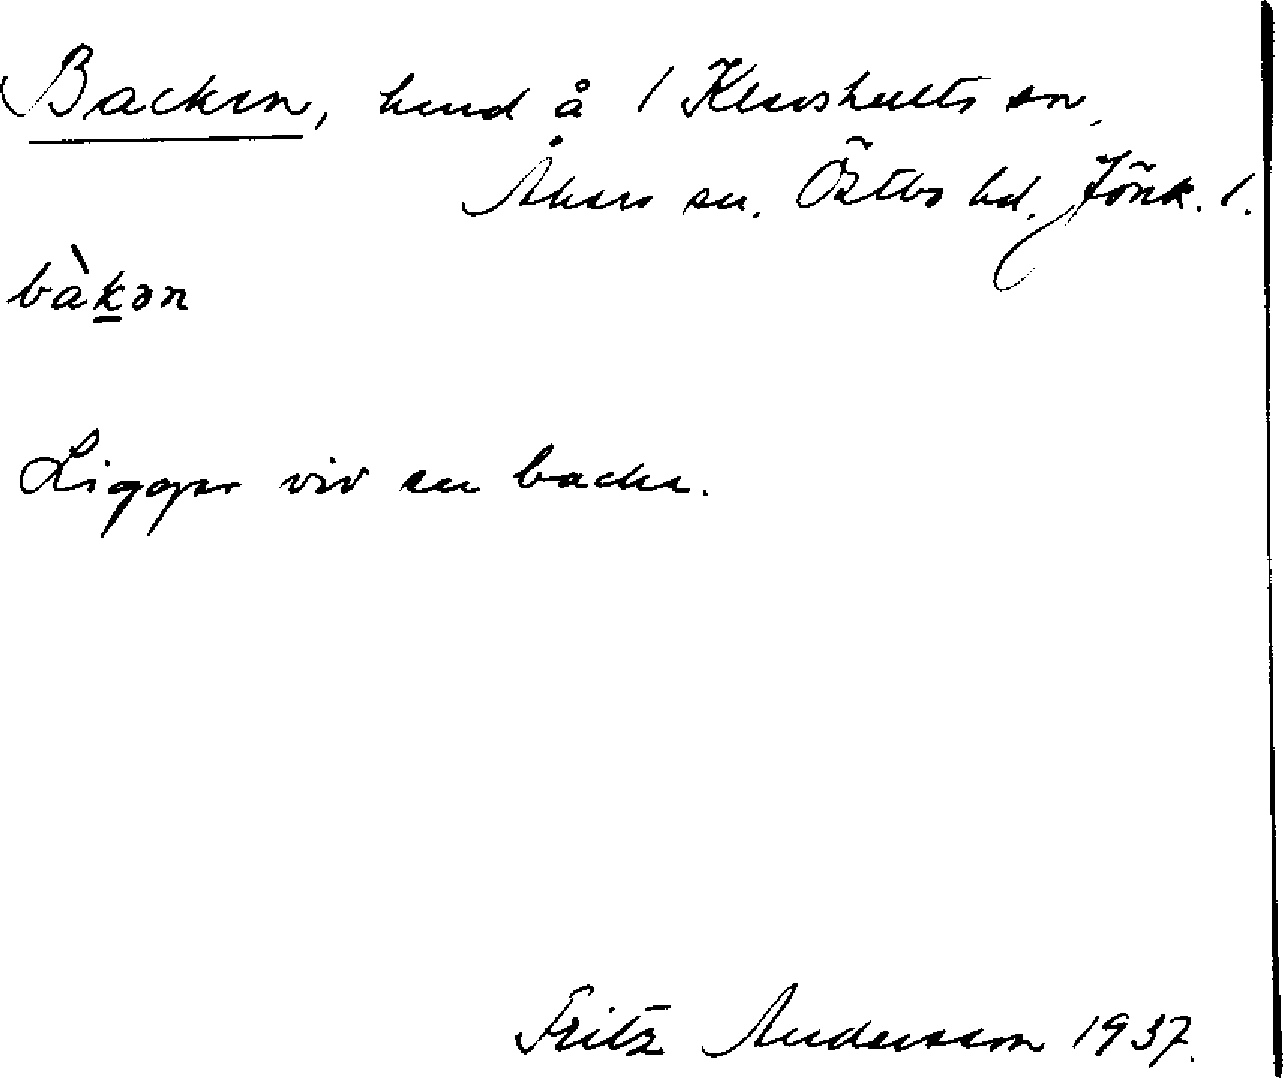 Backen, hmd å 1 Klevshults sn,
Åkers sn. Östbo hd. Jönk. l.
bàk̲ən
Ligger vid en backe.
Fritz Andersson 1937.